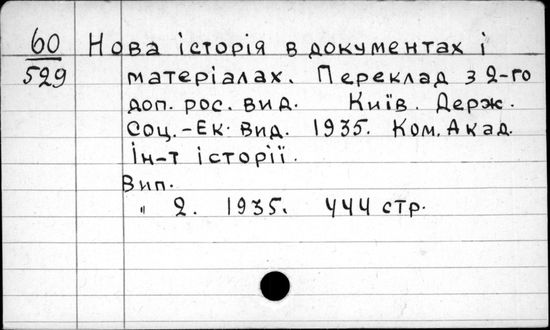 60 Нова історія в документах і
529 матеріалах. Переклад з 2-го
доп. рос. вид. Київ. Держ.
Соц.-Ек. Вид. 1935. Ком. Акад.
Ін-т історії.
Вип.
" 2. 1935. 444 стр.